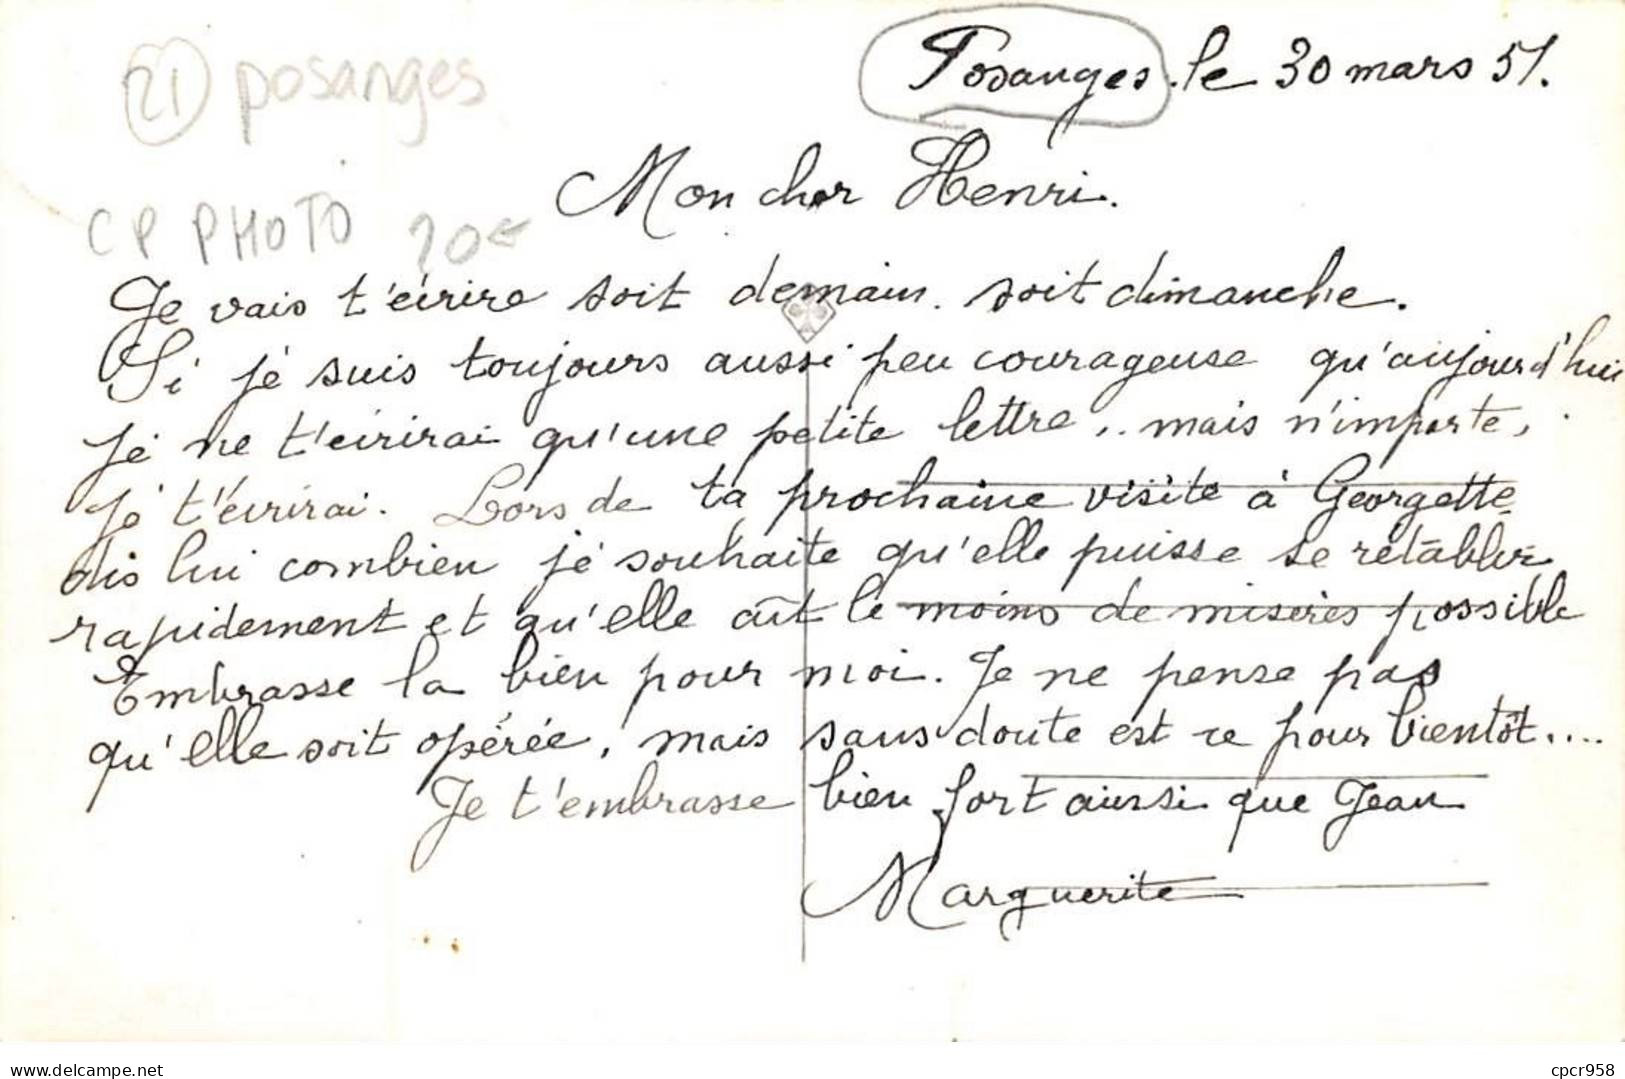 Posanges le 30 mars 51.
21 posanges
Mon cher Henri.
CP PHOTO 20€
Je vais t'écrire soit demain. soit dimanche.
Si je suis toujours aussi peu courageuse qu'aujourd'hui
je ne t'écrirai qu'une petite lettre, .. mais n'importe,
je t'écrirai. Lors de ta prochaine visite à Georgette
dis lui combien je souhaite qu'elle puisse se rétablir
rapidement et qu'elle aît le moins de misères possible
Embrasse la bien pour moi. Je ne pense pas
qu'elle soit opérée, mais sans doute est ce pour bientôt....
Je t'embrasse bien fort ainsi que Jean
Marguerite
delcampe.net
cpcr958